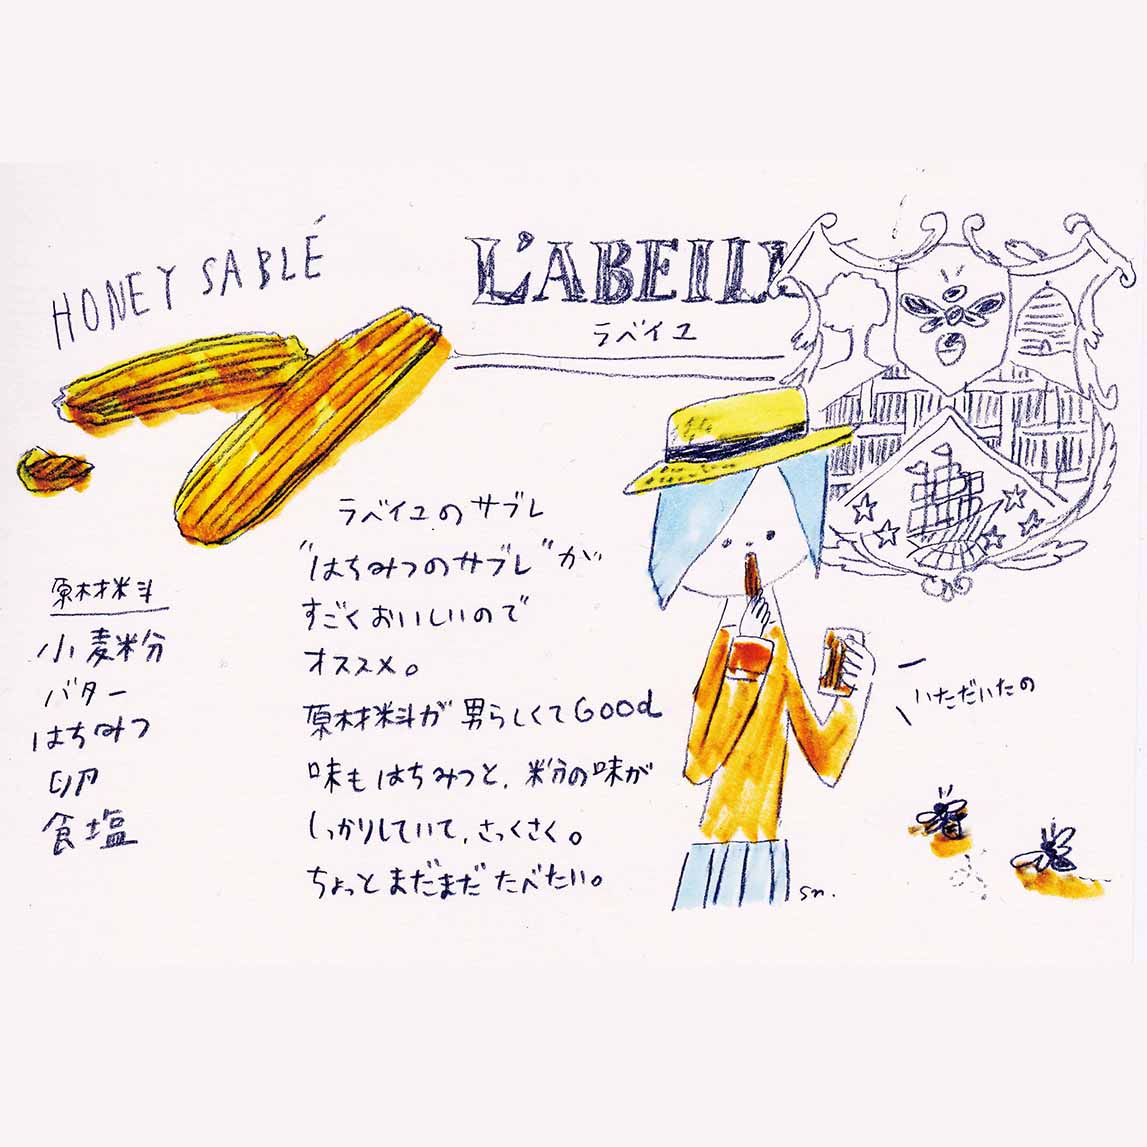 HONEY SABLÉ
L'ABEILL
ラベイユ
ラベイユのサブレ
"はちみつのサブレ"が
すごくおいしいので
オススメ。
原材料が男らしくてGood
味もはちみつと、粉分の味が
しっかりしていて、さっくさく。
ちょっとまだまだたべたい。
原材料
小麦粉分
バター
はちみつ
卵
食塩
いただいたの
sn.